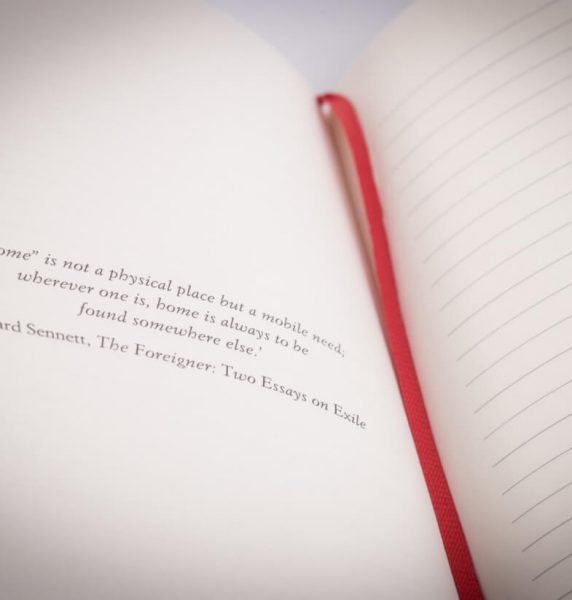 ome” is not a physical place but a mobile need;
wherever one is, home is always to be
found somewhere else.’
ard Sennett, The Foreigner: Two Essays on Exile